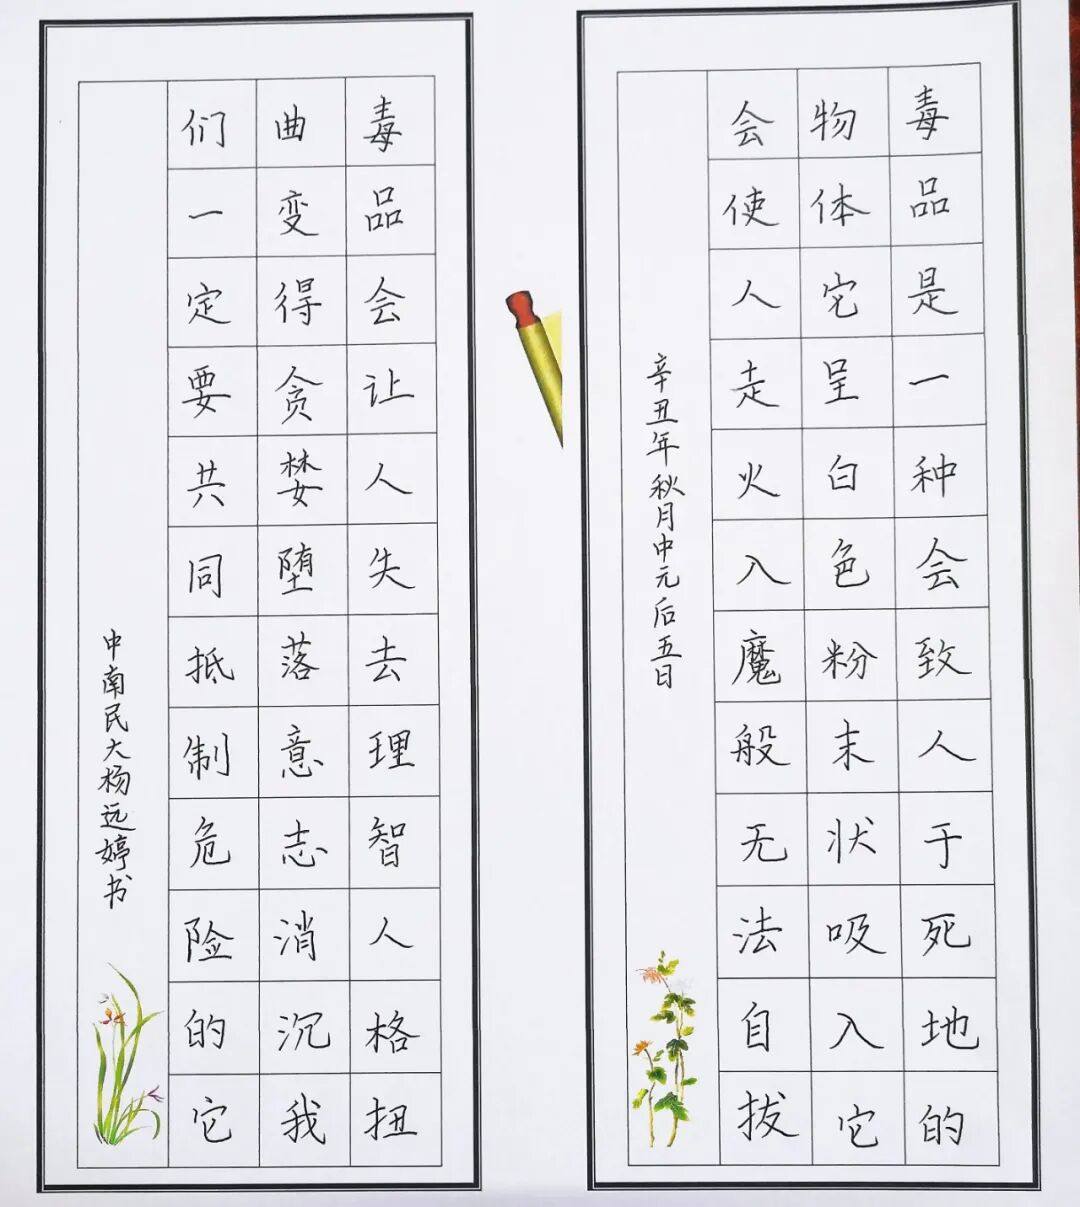 毒品是一种会致人于死地的
物体它呈白色粉末状吸入它
会使人走火入魔般无法自拔
辛丑年秋月中元后五日
毒品会让人失去理智人格扭
曲变得贪婪堕落意志消沉我
们一定要共同抵制危险的它
中南民大杨远婷书